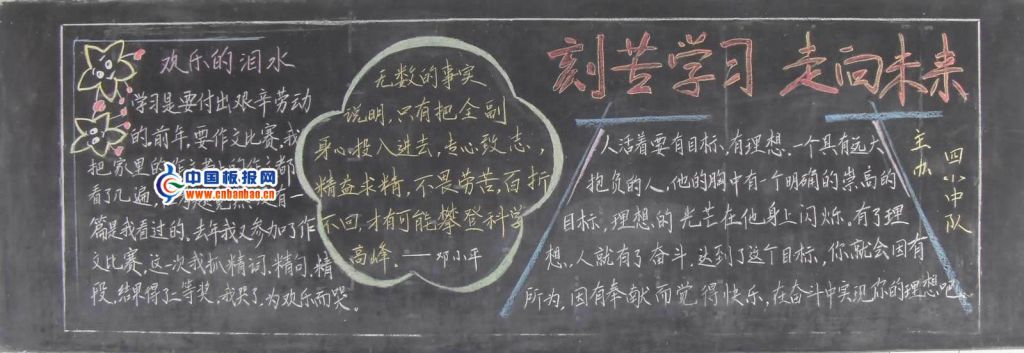 欢乐的泪水
学习是要付出艰辛劳动
的,前年,要作文比赛,我
把家里的作文书上的作文都
看了几遍,
一
篇是我看过的。去年我又参加了作
文比赛,这次我抓精词、精句、精
段,结果得了二等奖,我哭了,为欢乐而哭。
中国板报网
www.cnbanbao.cn
无数的事实
说明,只有把全副
身心投入进去,专心致志,
精益求精,不畏劳苦,百折
不回,才有可能攀登科学
高峰。——邓小平
刻苦学习 走向未来
人活着要有目标,有理想。一个具有远大
抱负的人,他的胸中有一个明确的崇高的
目标,理想的光芒在他身上闪烁。有了理
想,人就有了奋斗。达到了这个目标,你就会因有
所为,因有奉献而觉得快乐,在奋斗中实现你的理想吧。
主办
四小中队